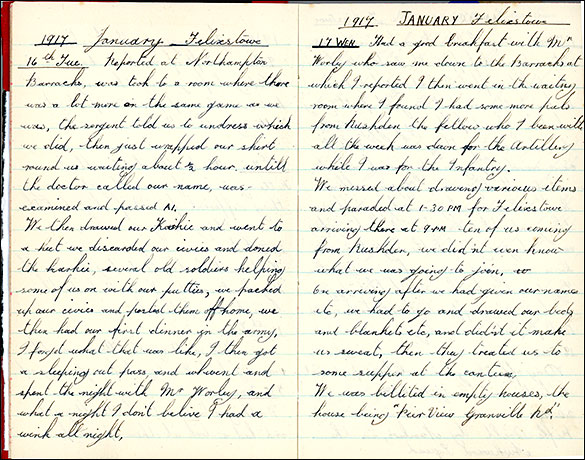 1917 January Felixstowe
16th Tue. Reported at Northampton
Barracks, was took to a room where there
was a lot more on the same game as we
was, the sergent told us to undress which
we did, then just wrapped our shirt
round us waiting about ½ hour untill
the doctor called our name, was
examined and passed A1.
We then drawed our Kahkie and went to
a hut we discarded our civies and doned
the karkie, several old soldiers helping
some of us on with our putties, we packed
up our civies and posted them off home, we
then had our first dinner in the army,
I forget what that was like, I then got
a sleeping out pass and went and
spent the night with Mr Worley, and
what a night I dont belive I had a
wink all night,
1917 JANUARY Felixstowe
17 WED Had a good breakfast with Mr
Worley who saw me down to the Barracks at
which I reported I then went in the waiting
room where I found I had some more pals
from Rushden the fellow who I been with
all the week was down for the Artillery
while I was for the Infantry.
We messed about drawing various items
and paraded at 1-30 PM for Felixstowe
arriving there at 9 PM ten of us coming
from Rushden, we did'nt even know
what we was going to join,
On arriving after we had given our names
etc, we had to go and drawed our beds
and blankets etc, and did'nt it make
us sweat, then they treated us to
some supper at the canteen,
We was billited in empty houses, the
house being "Peir View Granville Rd".